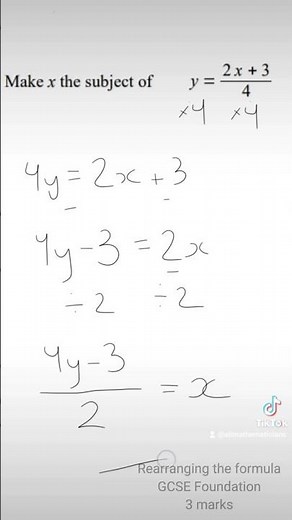 Make x the subject of y = (2x + 3)/4
×4 ×4
4y = 2x + 3
4y - 3 = 2x
÷2 ÷2
(4y-3)/2 = x
TikTok
Rearranging the formula
GCSE Foundation
3 marks